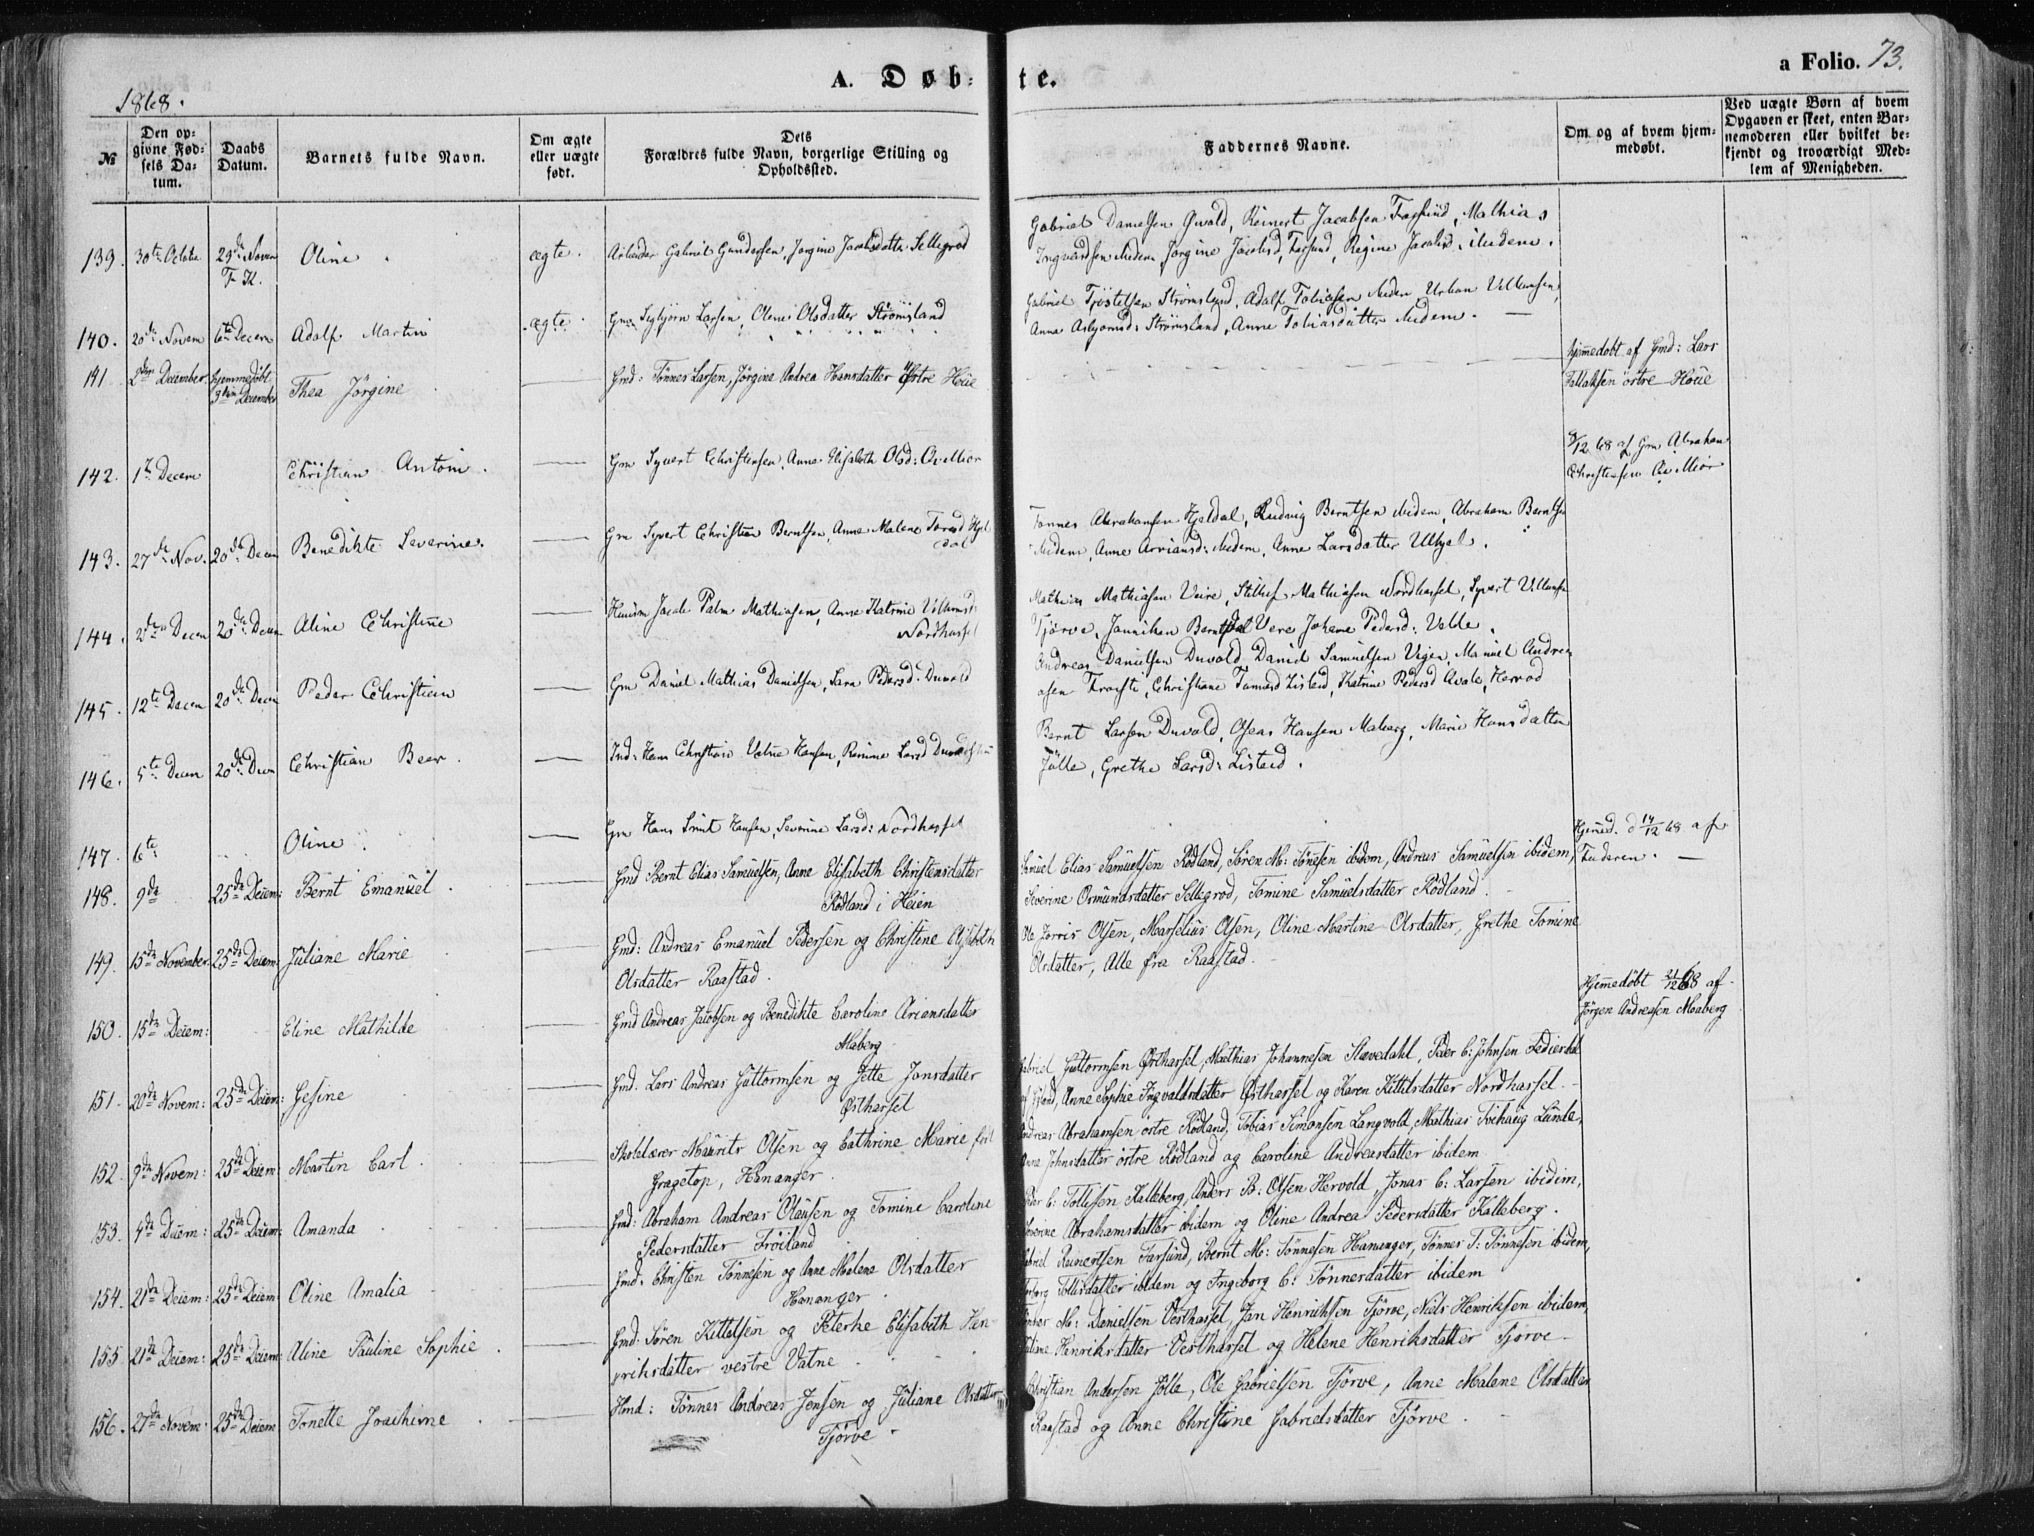 A. Døb-te.
a Folio. 73.
1868.
№
Den opgivne Fødsels Datum.
Daabs Datum.
Barnets fulde Navn.
Om ægte eller uægte født.
Dets Forældres fulde Navn, borgerlige Stilling og Opholdssted.
Faddernes Navne.
Om og af hvem hjemmedøbt.
Ved uægte Børn af hvem Opgaven er skeet, enten Barnemoderen eller hvilket bekjendt og troværdigt Medlem af Menigheden.
Gabriel Danielsen Qvald, Reinert Jacobsen Farsund, Mathias
139. 30te Octobe 29de Novem Oline ægte. Arbeider Gabriel Gundersen, Jørgine Jacobsdatter Sellegrod
Ingvardsen ibidem, Jørgine Jacobsd, Farsund, Regine Jacobsd. ibidem.
F. K.
Gabriel Tröstelsen Strømsland, Adolf Tobiasen ibidem, Urban Villumsen
140. 20de Novem 6te Decem Adolf Martin ægte. Gm Sigbjørn Larsen, Oleni Olsdatter Strömsland
Anna Asbjørnsd: Strømsland, Anne Tobiasdatter ibidem.
141 2den December hjemmedøbt 3die December Thea Jörgine Gmd: Tönnes Larsen, Jörgine Andrea Hansdatter Östre Höüe
hjemmedøbt af Gmd: Lars
Fallaksen östre Höüe
142. 1te Decem Christian Antoni. Gm Syvert Christensen, Anne Elisabeth Olsd: Ov. Miør
9/12 68 af Gm Abraham
Christensen Ov. Miør
143. 27de Nov. 20de Decem Benedikte Severine. Gm Syvert Christian Berntsen, Anne Malene Torasd Hjeldal
Tønnes Abrahamsen Hjeldal, Ludvig Berntsen ibidem, Abraham Berntsen
ibidem, Anne Arriansd: ibidem, Anne Larsdatter Ulhjel.
144. 2den Decem 20de Decem Aline Christine Huusm Jacob Palm Mathiasen, Anne Katrine Villumsd:
Nordhassel
Mathias Mathiasen Veire, Stillef Mathiasen Nordhassel, Syvert Villumsen
Tjörve, Janniken Berntsdal Vere Johanne Pedersd: Velle.
145. 12te Decem 20de Decem Peder Christian Gm Daniel Mathias Danielsen, Sara Pedersd: Duvold
Andreas Danielsen Duvold, Daniel Samuelsen Vigen, Manuel Andre
asen Kroste, Christiane Tomasd Listeid, Katrine Pedersd Avale, Hervod
146. 5te Decem 20de Decem Christian Beer. Ind: Hans Christian Vatne Hansen, Ramine Larsd
Bernt Larsen Duvold, Oseas Hansen Maberg, Marie Hansdatter
Jölle, Grethe Larsd: Listeid.
147. 6te Oline. Gm Hans Smit Hansen, Severine Larsd: Nordhassel
Hjemmed. d 14/12 68 af
Faderen.
148. 9de 25de Decem: Bernt Emanuel. Gmd Bernt Elias Samuelsen, Anne Elisabeth Christensdatter
Rödland i Heien
Samuel Elias Samuelsen Rödland, Sören M: Tönesen ibidem, Andreas Samuelsen ibidem,
Severine Osmundsdatter Sellegrod, Tomine Samuelsdatter Rödland.
149. 15de November 25de Decem: Juliane Marie Gmd: Andreas Emanuel Pedersen og Christine Elisabeth
Olsdatter Raastad.
Ole Jorris Olsen, Marselius Olsen, Oline Martine Olsdatter, Grethe Tomine
Olsdatter, Alle fra Raastad.
150. 15de Decem: Eline Mathilde Gmd Andreas Jacobsen og Benedikte Caroline Ariansdatter
Maberg
Hjemmedøbt 21/12 68 af
Jörgen Andreasen Maaberg
151. 20de Novem: 25de Decem: Gesine Gmd. Lars Andreas Guttormsen og Jette Jonsdatter
Østhassel
Gabriel Guttormsen Østhassel, Mathias Johannesen Stavedahl, Peder C: Johnsen
Anne Sophie Ingvaldsdatter Østhassel og Karen Kittelsdatter Nordhassel.
152. 9de Novem: 25de Decem: Martin Carl. Skolelærer Mauritz Olsen og Cathrine Marie född
Gragetop, Hananger.
Andreas Abrahamsen östre Rödland, Tobias Simonsen Langvold, Mathias Tvihaug Lunde,
Anne Johnsdatter östre Rödland og Caroline Andreasdatter ibidem
153. 4de Decem: 25de Decem: Amanda Gmd: Abraham Andreas Olausen og Tomine Caroline
Pedersdatter Fröiland
Peder C: Tollisen Kalleberg, Anders B: Olsen Hervold, Jonas C: Larsen ibidem,
Severine Abrahamsdatter ibidem og Oline Andrea Pedersdatter Kalleberg.
154. 21de Decem: 25de Decem: Oline Amalia Gmd. Christen Tönnesen og Anne Malene Olsdatter
Hananger.
Gabriel Reinertsen Farsund, Bernt M: Tönnesen Hananger, Tönnes T: Tönnesen ibidem,
Torborg Tollisdatter ibidem og Ingeborg C: Tönnesdatter ibidem
155 21de Decem: 25de Decem: Aline Pauline Sophie. Gmd: Sören Kittelsen og Peterke Elisabeth Hen-
riksdatter vestre Vatne.
M: Danielsen Vesthassel, Jan Henriksen Tjörve, Niels Henriksen ibidem,
Henriksdatter Vesthassel og Helene Henriksdatter Tjörve
156. 27de Novem: 25de Decem Tonette Joachime Hmd: Tönnes Andreas Jensen og Juliane Olsdatter
Tjörve.
Christian Andersen Jölle, Ole Gabrielsen Tjörve, Anne Malene Olsdatter
Raastad og Anne Christine Gabrielsdatter Tjörve.